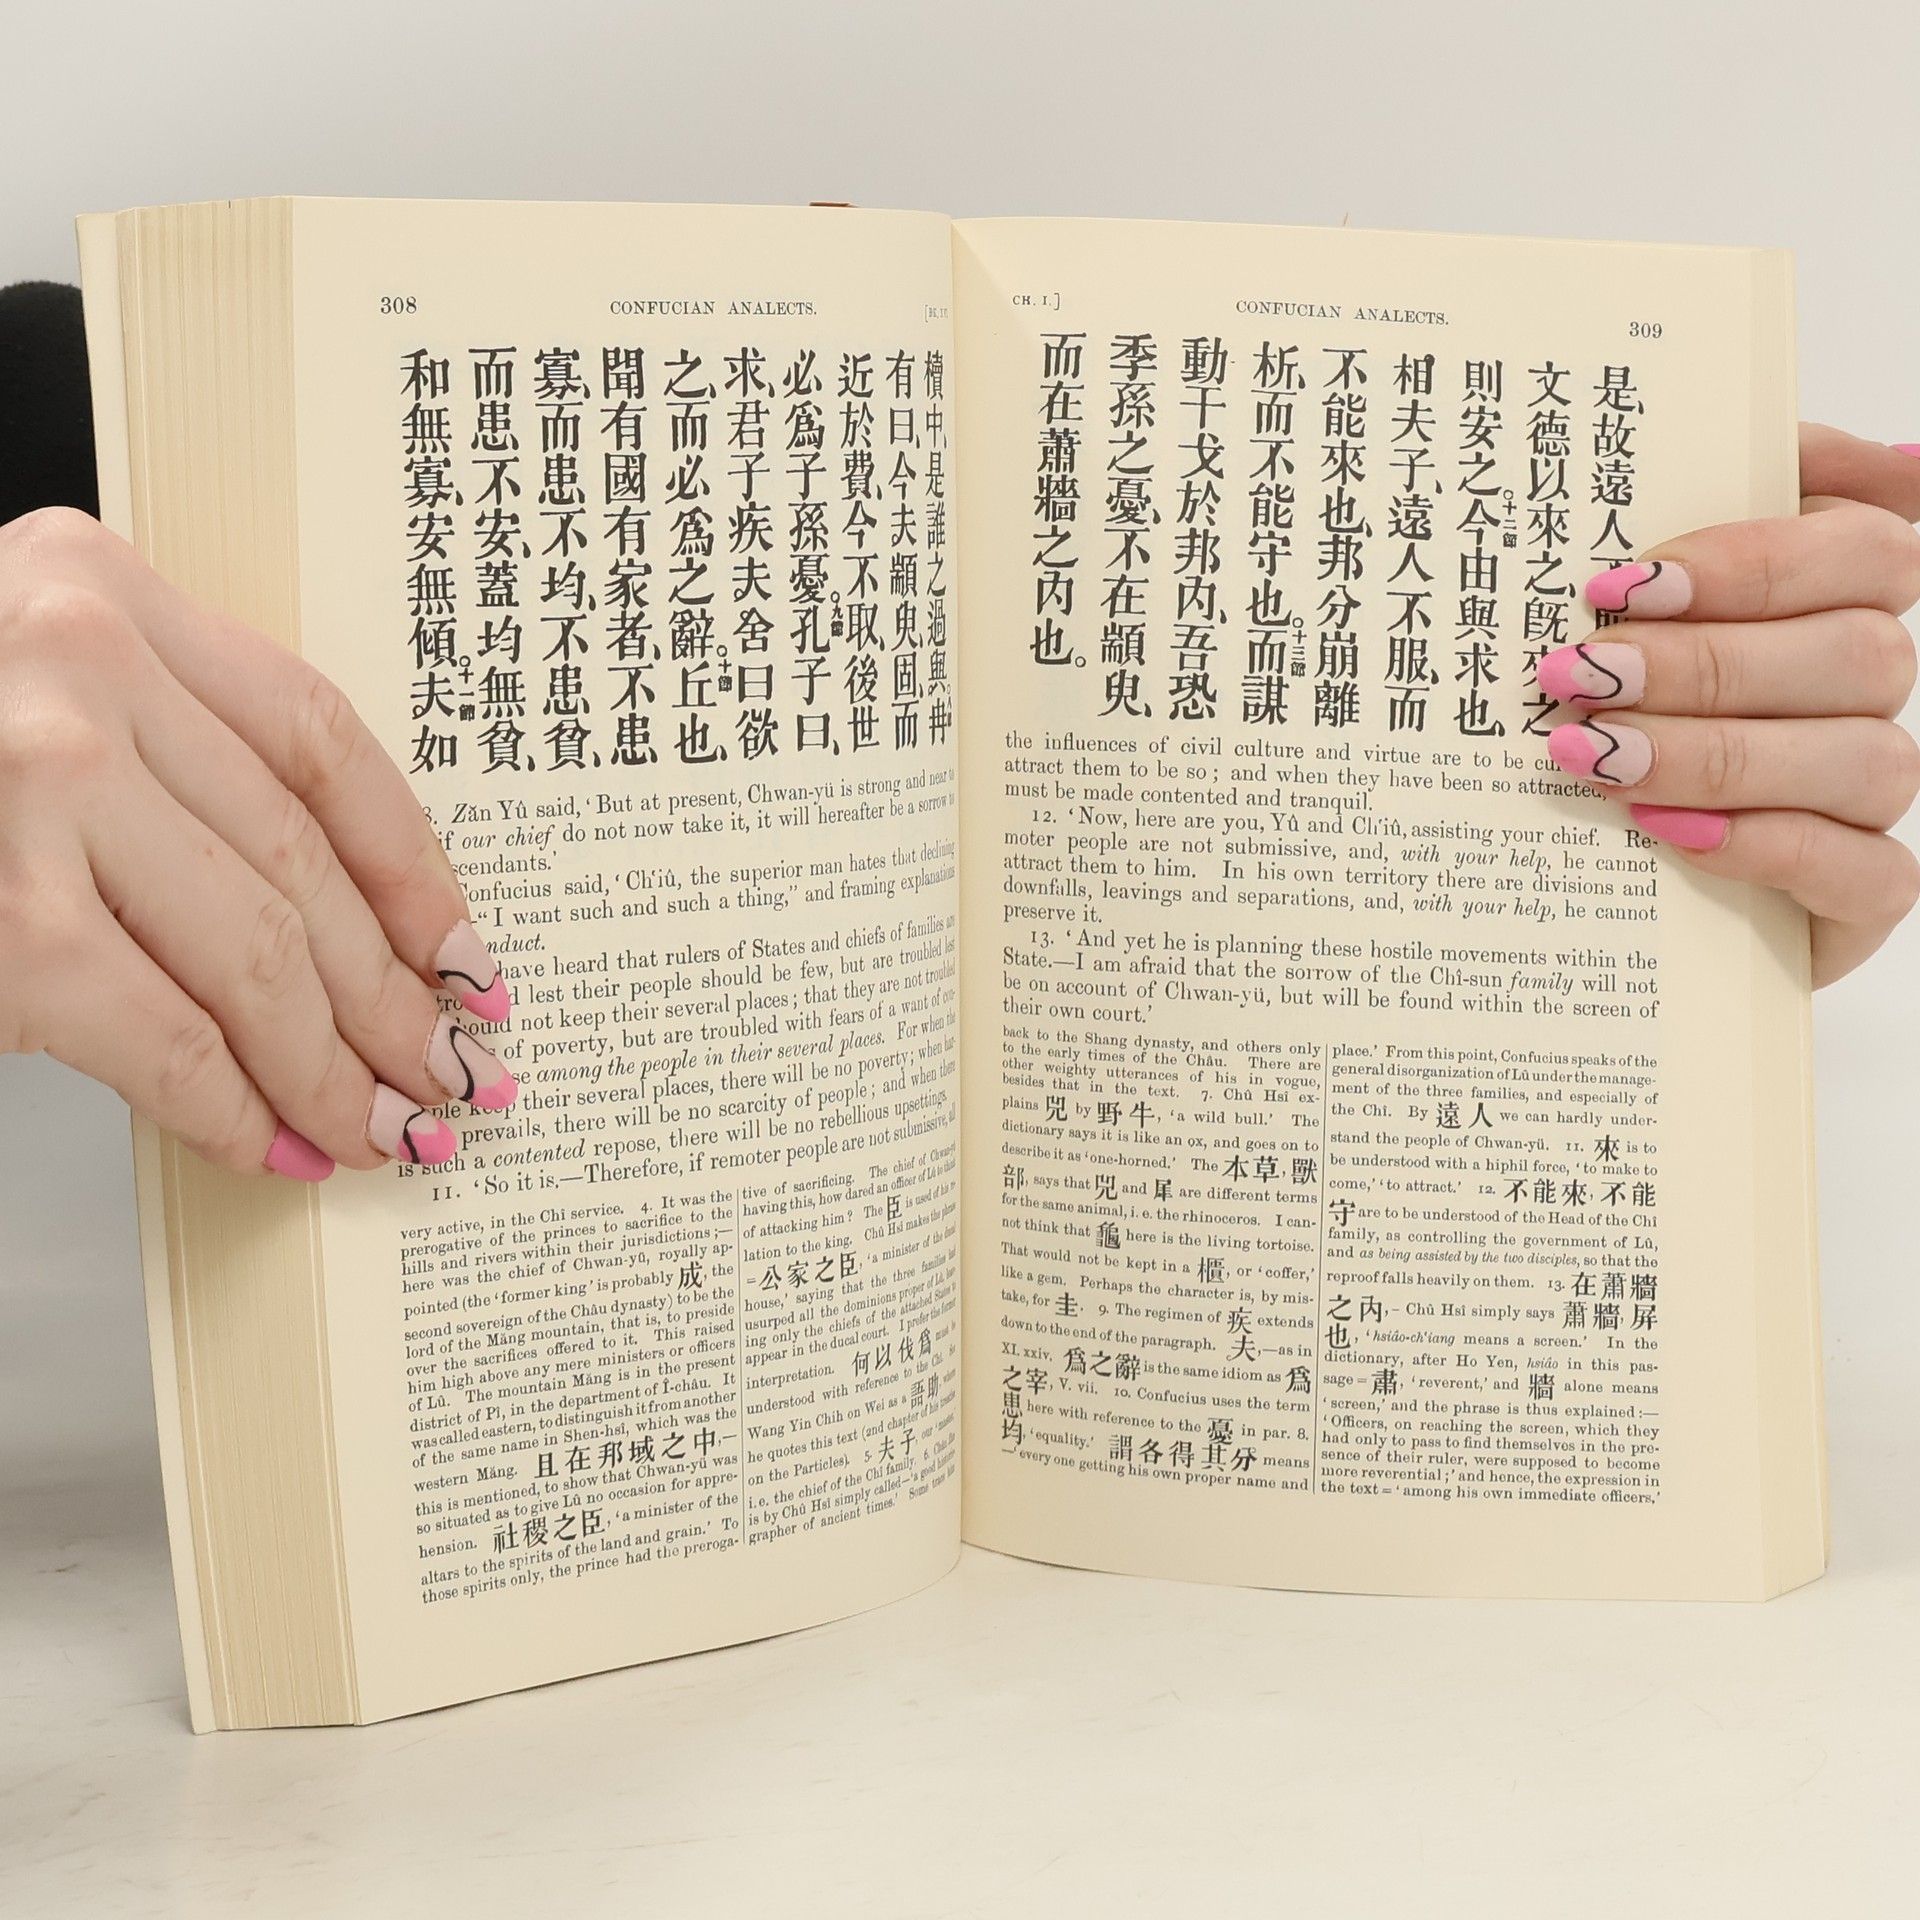 308
CONFUCIAN ANALECTS.
櫝中、是誰之過與、冉
有曰、今夫顓臾、固而
近於費、今不取、後世
必爲子孫憂、○九節孔子曰、
求、君子疾夫舍曰欲
之、而必爲之辭、○十節丘也、
聞有國有家者、不患
寡、而患不均、不患貧、
而患不安、蓋均無貧、
和無寡、安無傾。○十一節夫如
8. Zăn Yû said, ‘But at present, Chwan-yü is strong and near to
if our chief do not now take it, it will hereafter be a sorrow to
scendants.’
Confucius said, ‘Ch‘iû, the superior man hates that declining
“I want such and such a thing,” and framing explanations
nduct.
have heard that rulers of States and chiefs of families are
lest their people should be few, but are troubled lest
should not keep their several places; that they are not troubled
of poverty, but are troubled with fears of a want of con-
among the people in their several places. For when the
keep their several places, there will be no poverty; when har-
prevails, there will be no scarcity of people; and when there
is such a contented repose, there will be no rebellious upsettings.
11. ‘So it is.—Therefore, if remoter people are not submissive, all
very active, in the Chî service. 4. It was the
prerogative of the princes to sacrifice to the
hills and rivers within their jurisdictions;—
here was the chief of Chwan-yü, royally ap-
pointed (the ‘former king’ is probably 成, the
second sovereign of the Châu dynasty) to be the
lord of the Măng mountain, that is, to preside
over the sacrifices offered to it. This raised
him high above any mere ministers or officers
of Lû. The mountain Măng is in the present
district of Pî, in the department of Î-châu. It
was called eastern, to distinguish it from another
of the same name in Shen-hsî, which was the
western Măng. 且在邦域之中,—
this is mentioned, to show that Chwan-yü was
so situated as to give Lû no occasion for appre-
hension. 社稷之臣, ‘a minister of the
altars to the spirits of the land and grain.’ To
those spirits only, the prince had the preroga-
tive of sacrificing. The chief of Chwan-yü
having this, how dared an officer of Lû to think
of attacking him? The 臣 is used of his re-
lation to the king. Chû Hsî makes the phrase
=公家之臣, ‘a minister of the ducal
house,’ saying that the three families had
usurped all the dominions proper of Lû, leav-
ing only the chiefs of the attached States to
appear in the ducal court. I prefer the former
interpretation. 何以伐爲 must be
understood with reference to the Chî.
Wang Yin Chih on Wei as a 語助, where
he quotes this text (and chapter of his treatise
on the Particles). 5. 夫子, our ‘master,’
i.e. the chief of the Chî family. 6. Châu Zăn
is by Chû Hsî simply called—‘a good historio-
grapher of ancient times.’ Some trace him
CH. I.]
CONFUCIAN ANALECTS.
309
是、故遠人
文德以來之、既來之
則安之、○十二節今由與求也、
相夫子、遠人不服、而
不能來也、邦分崩離
析、而不能守也、○十三節而謀
動干戈於邦內、吾恐
季孫之憂、不在顓臾、
而在蕭牆之內也。
the influences of civil culture and virtue are to be
attract them to be so; and when they have been so attracted,
must be made contented and tranquil.
12. ‘Now, here are you, Yû and Ch‘iû, assisting your chief. Re-
moter people are not submissive, and, with your help, he cannot
attract them to him. In his own territory there are divisions and
downfalls, leavings and separations, and, with your help, he cannot
preserve it.
13. ‘And yet he is planning these hostile movements within the
State.—I am afraid that the sorrow of the Chî-sun family will not
be on account of Chwan-yü, but will be found within the screen of
their own court.’
back to the Shang dynasty, and others only
to the early times of the Châu. There are
other weighty utterances of his in vogue,
besides that in the text. 7. Chû Hsî ex-
plains 兕 by 野牛, ‘a wild bull.’ The
dictionary says it is like an ox, and goes on to
describe it as ‘one-horned.’ The 本草, 獸
部, says that 兕 and 犀 are different terms
for the same animal, i.e. the rhinoceros. I can-
not think that 龜 here is the living tortoise.
That would not be kept in a 櫃, or ‘coffer,’
like a gem. Perhaps the character is, by mis-
take, for 圭. 9. The regimen of 疾 extends
down to the end of the paragraph. 夫,—as in
XI. xxiv. 爲之辭 is the same idiom as 爲
之宰, V. vii. 10. Confucius uses the term
患 here with reference to the 憂 in par. 8.
均, ‘equality.’ 謂各得其分 means
—‘every one getting his own proper name and
place.’ From this point, Confucius speaks of the
general disorganization of Lû under the manage-
ment of the three families, and especially of
the Chî. By 遠人 we can hardly under-
stand the people of Chwan-yü. 11. 來 is to
be understood with a hiphil force, ‘to make to
come,’ ‘to attract.’ 12. 不能來, 不能
守 are to be understood of the Head of the Chî
family, as controlling the government of Lû,
and as being assisted by the two disciples, so that the
reproof falls heavily on them. 13. 在蕭牆
之內,– Chû Hsî simply says 蕭牆, 屏
也, ‘hsiâo-ch‘iang means a screen.’ In the
dictionary, after Ho Yen, hsiâo in this pas-
sage=肅, ‘reverent,’ and 牆 alone means
‘screen,’ and the phrase is thus explained:—
‘Officers, on reaching the screen, which they
had only to pass to find themselves in the pre-
sence of their ruler, were supposed to become
more reverential;’ and hence, the expression in
the text=‘among his own immediate officers,’